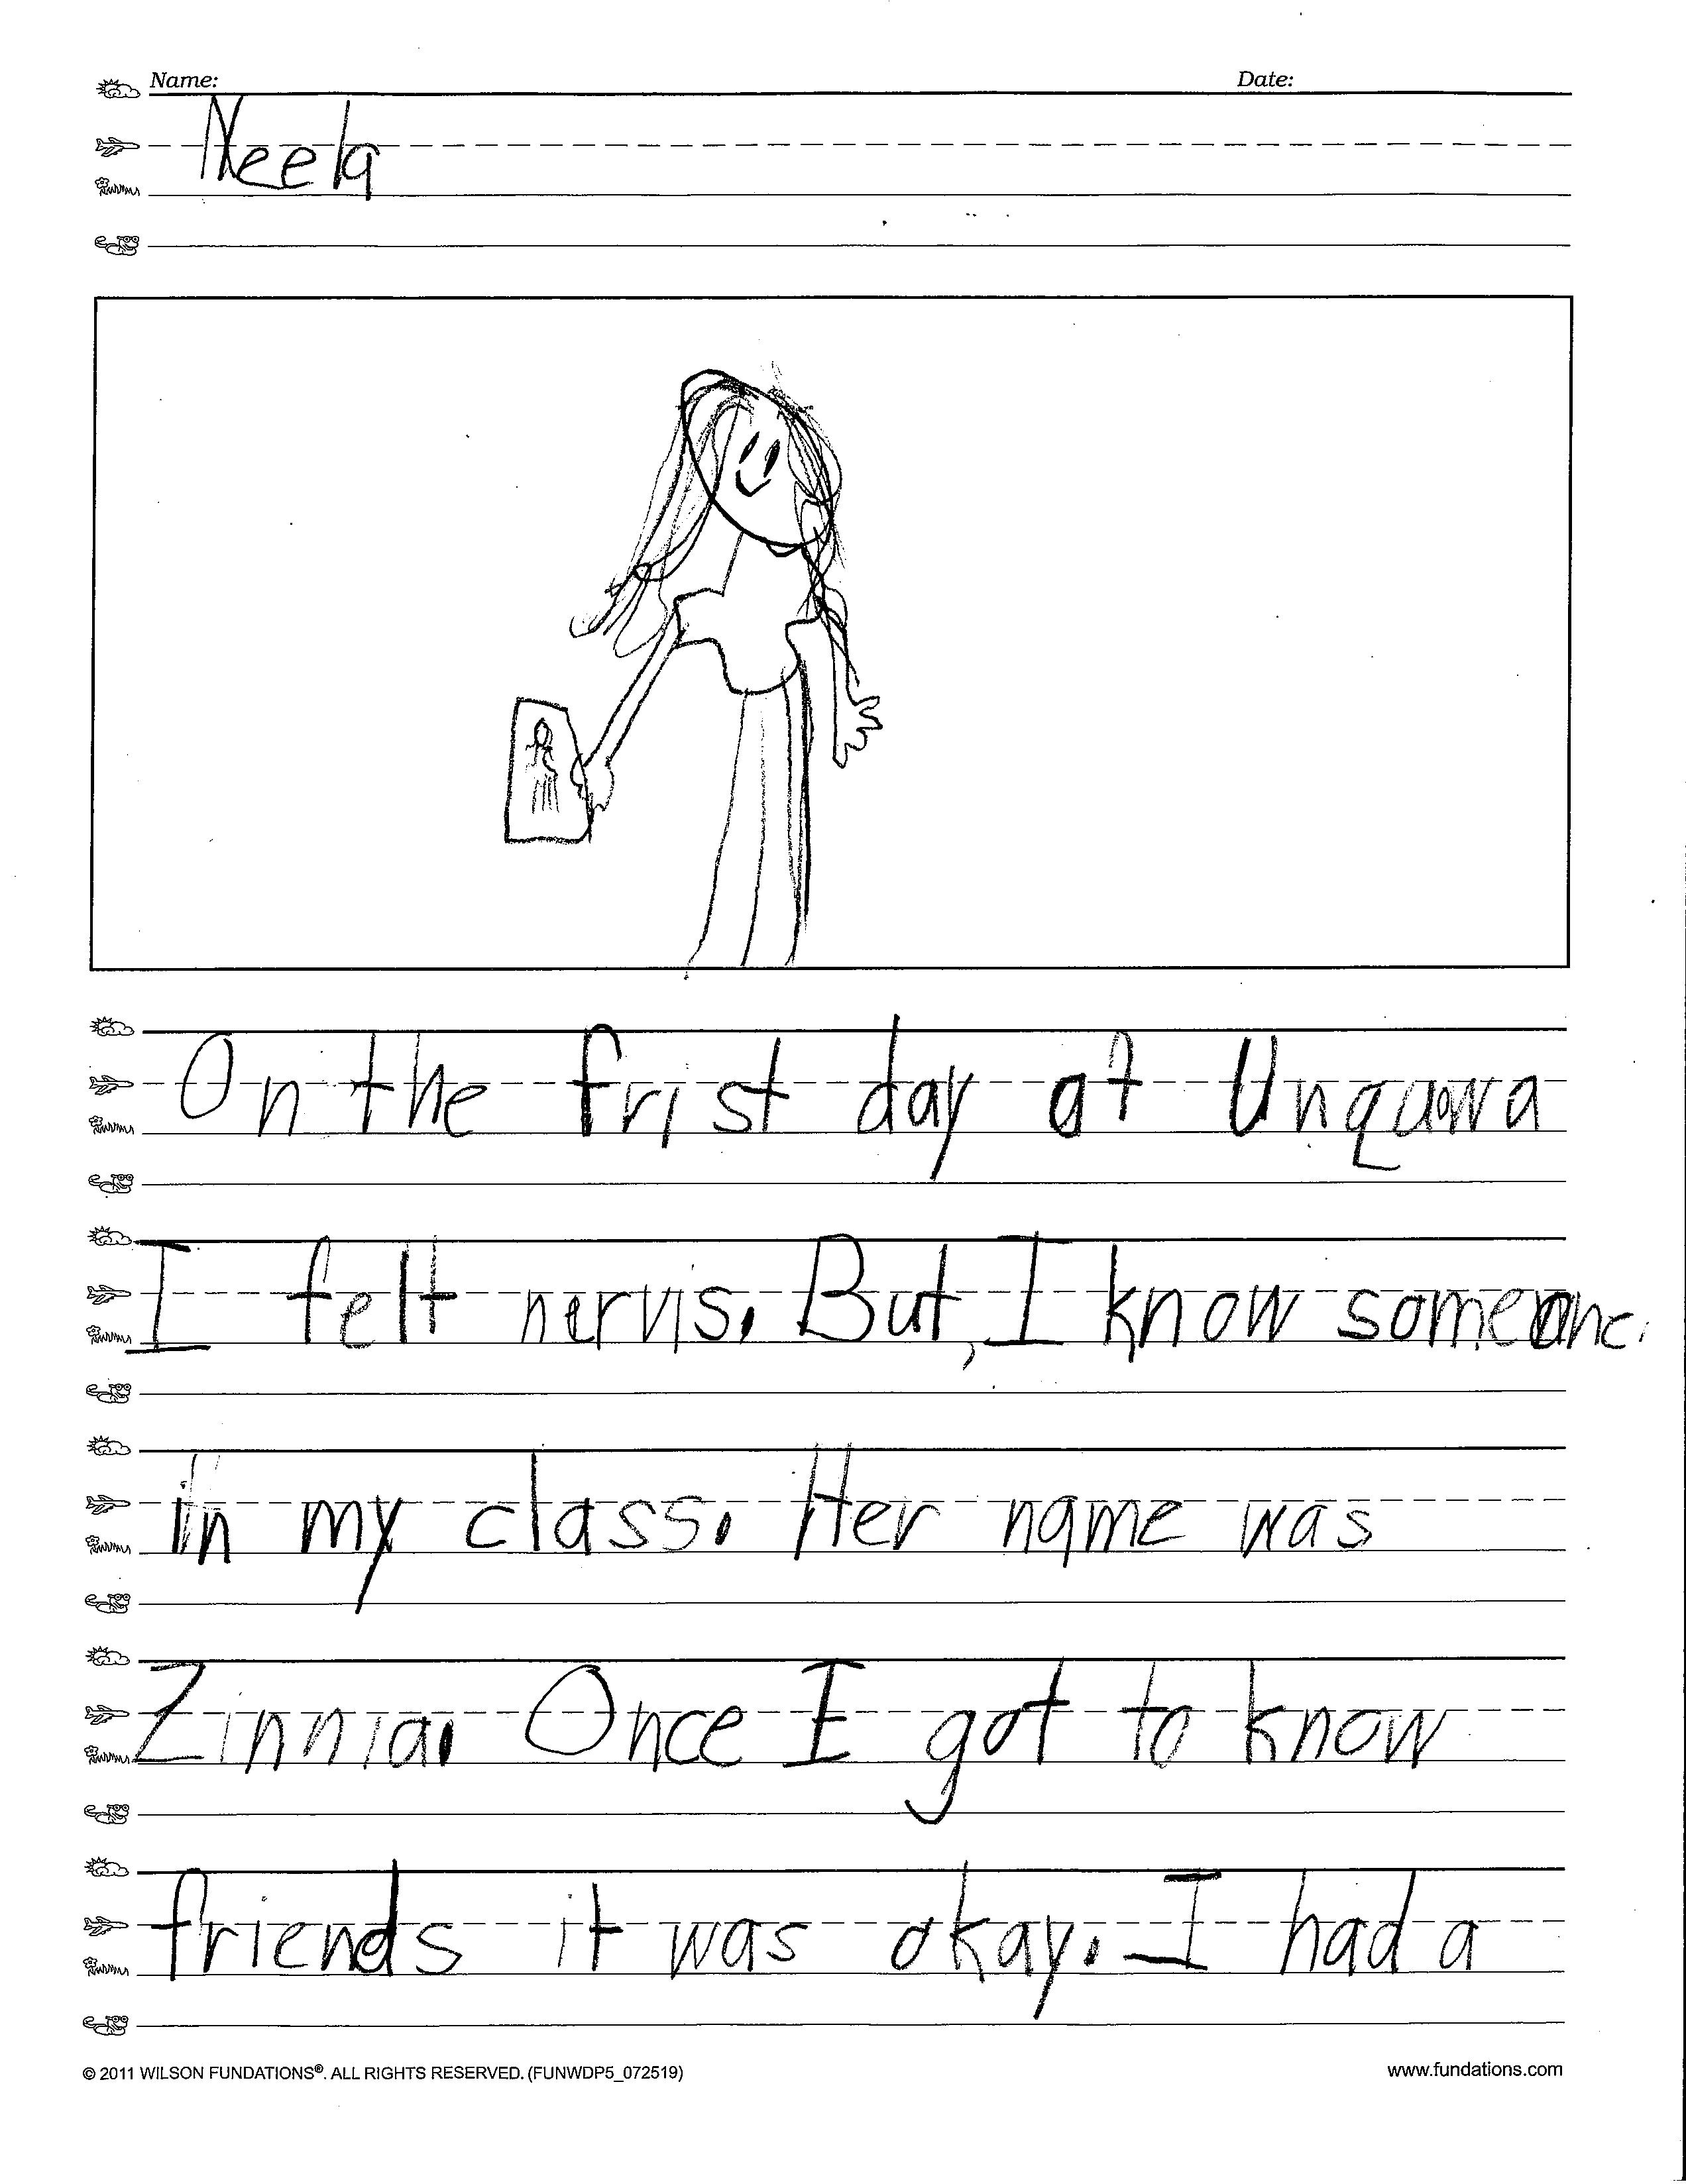 Name: Date:
Neela
On the frist day at Unqawa
I felt nervis. But, I know someone
in my class. Her name was
Zinnia. Once I got to know
friends it was okay. I had a
© 2011 WILSON FUNDATIONS®. ALL RIGHTS RESERVED. (FUNWDP5_072519) www.fundations.com